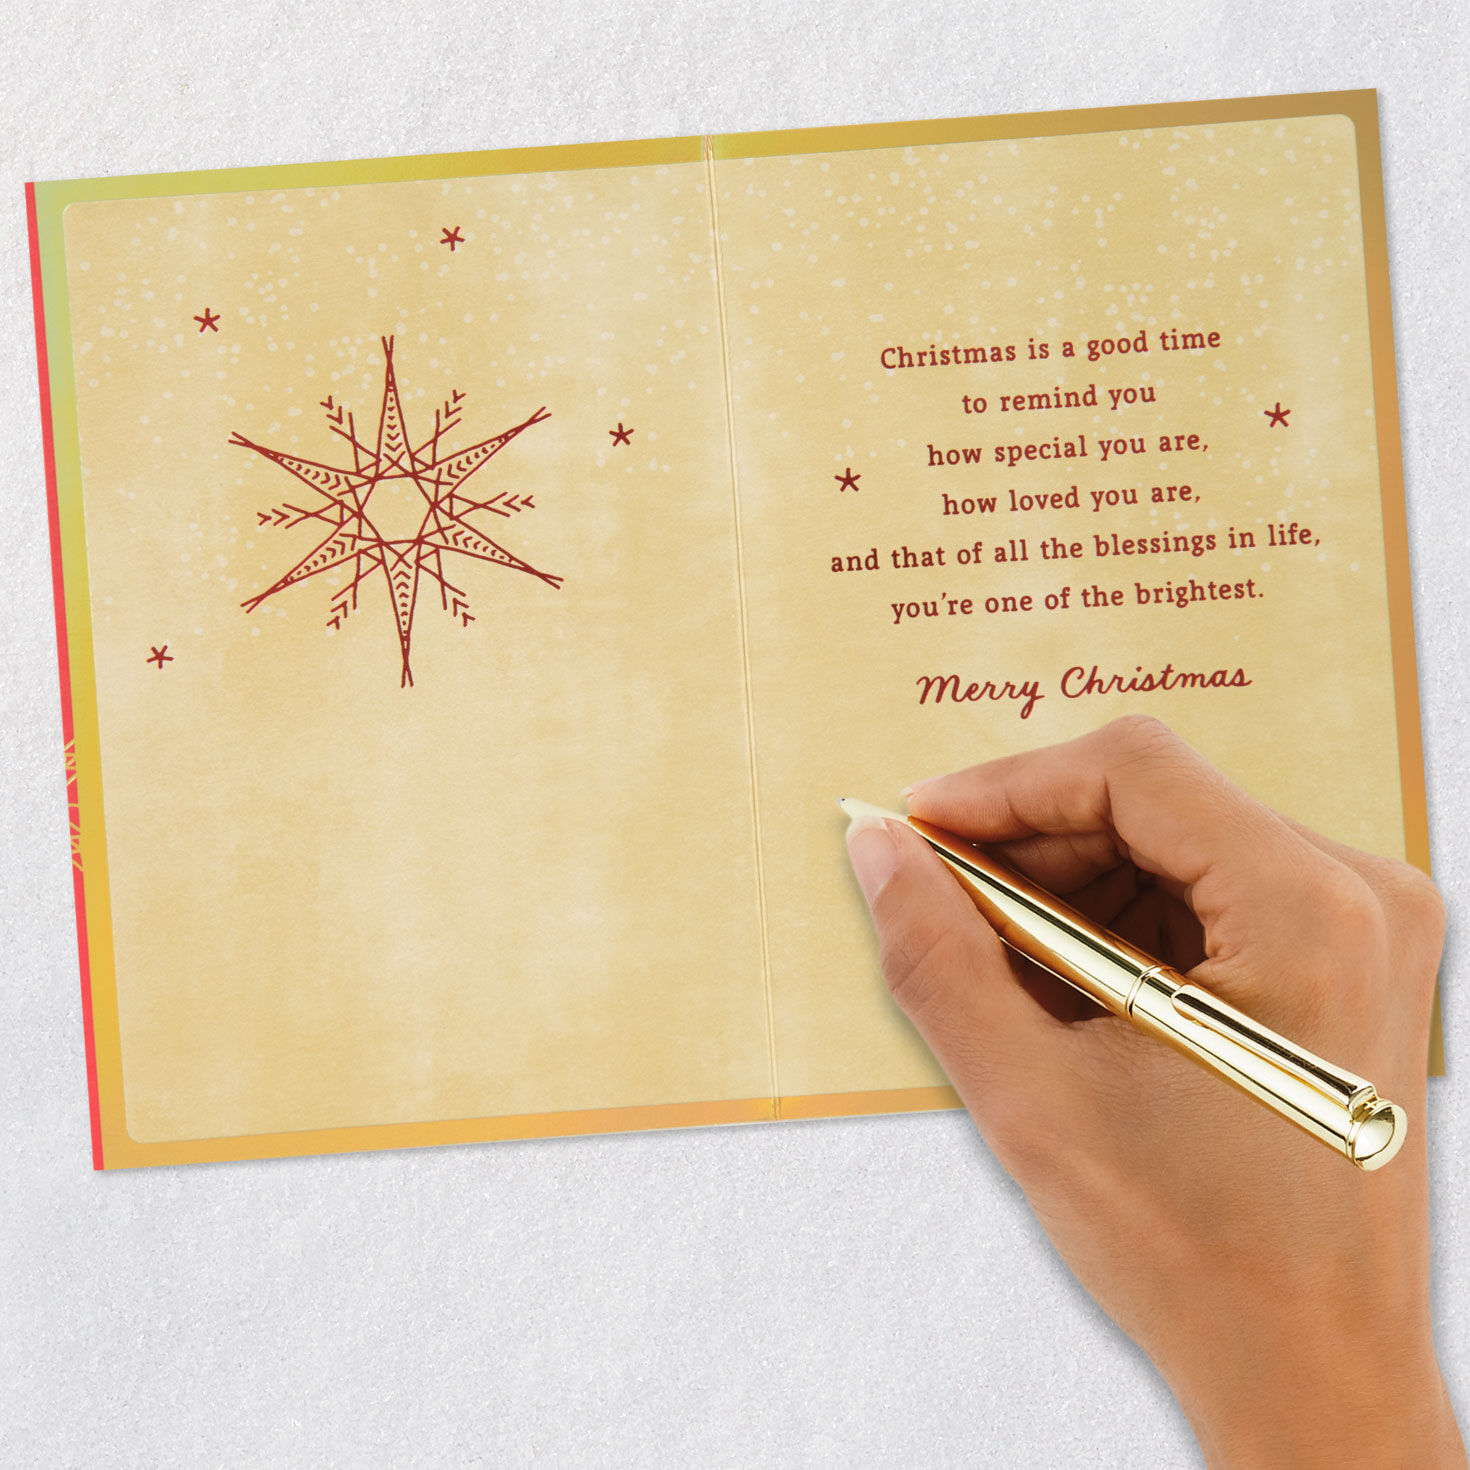 Christmas is a good time
to remind you
how special you are,
how loved you are,
and that of all the blessings in life,
you're one of the brightest.
Merry Christmas